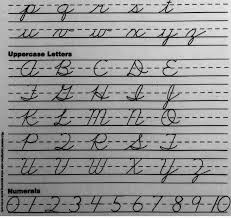 p q r s t
u v w x y z
Uppercase Letters
A B C D E
F G H I J
K L M N O
P Q R S T
U V W X Y Z
Numerals
0 1 2 3 4 5 6 7 8 9 10